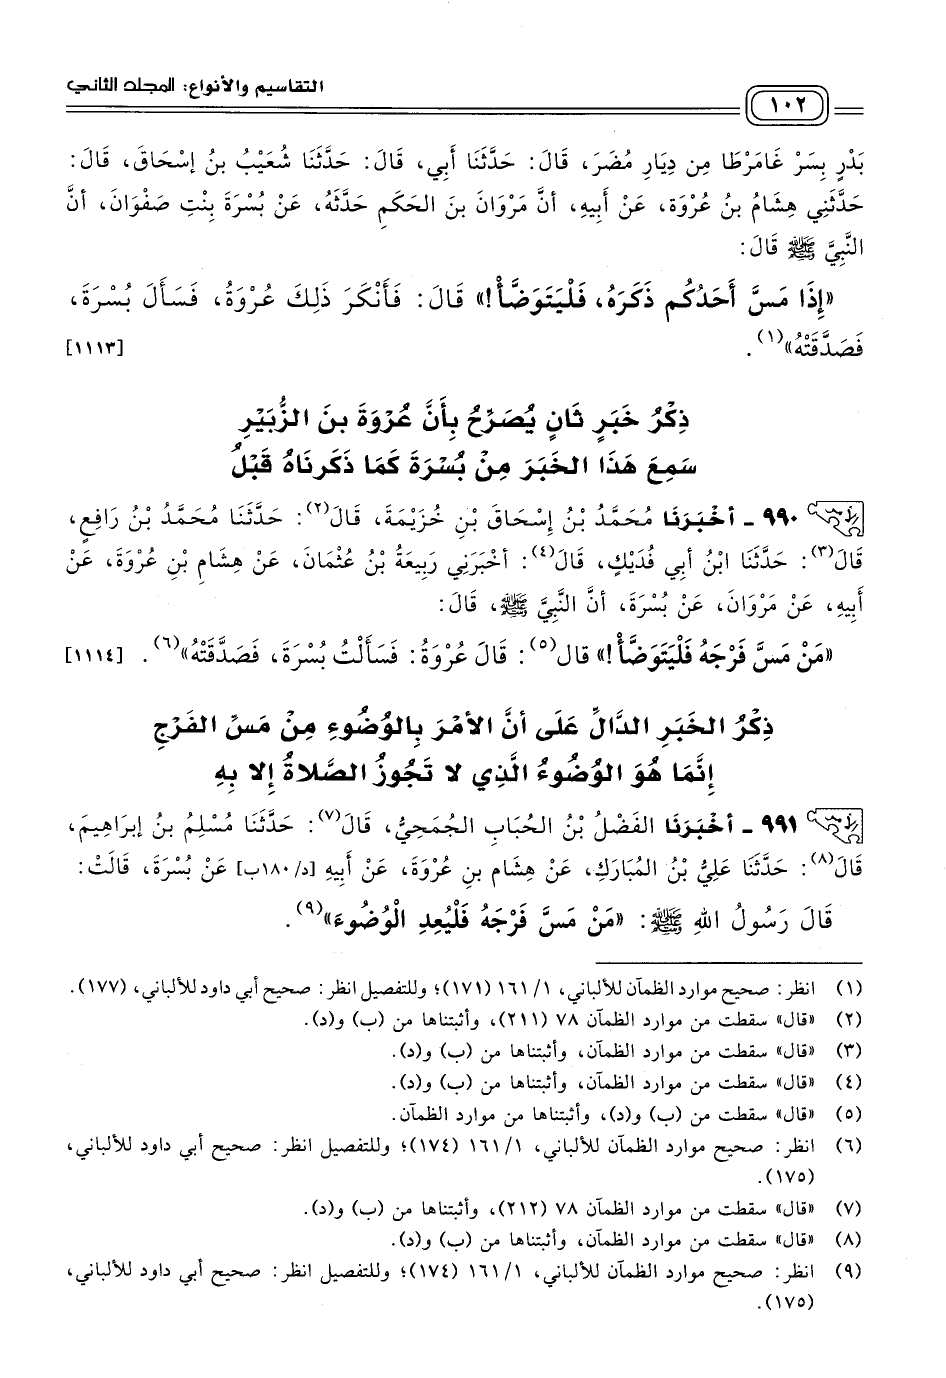 التقاسيم والأنواع: المجلد الثاني
١٠٢
بَدْرٍ بِسَرْ غَامَرْطَا مِن دِيَارِ مُضَرَ، قَالَ: حَدَّثَنَا أَبِي، قَالَ: حَدَّثَنَا شُعَيْبُ بنُ إسْحَاقَ، قَالَ:
حَدَّثَنِي هِشَامُ بنُ عُرْوَةَ، عَنْ أَبِيهِ، أنَّ مَرْوَانَ بنَ الحَكَمِ حَدَّثَهُ، عَنْ بُسْرَةَ بِنْتِ صَفْوَانَ، أنَّ
النَّبِيَّ ﷺ قَالَ:
«إِذَا مَسَّ أَحَدُكُم ذَكَرَهُ، فَلْيَتَوَضَّأْ!» قَالَ: فَأَنْكَرَ ذَلِكَ عُرْوَةُ، فَسَأَلَ بُسْرَةَ،
فَصَدَّقَتْهُ»(١). [١١١٣]
ذِكْرُ خَبَرٍ ثَانٍ يُصَرِّحُ بِأَنَّ عُرْوَةَ بنَ الزُّبَيْرِ
سَمِعَ هَذَا الخَبَرَ مِنْ بُسْرَةَ كَمَا ذَكَرنَاهُ قَبْلُ
٩٩٠ - أخْبَرَنَا مُحَمَّدُ بْنُ إِسْحَاقَ بْنِ خُزَيْمَةَ، قَالَ(٢): حَدَّثَنَا مُحَمَّدُ بْنُ رَافِعٍ،
قَالَ(٣): حَدَّثَنَا ابْنُ أبي فُدَيْكٍ، قَالَ(٤): أخْبَرَنِي رَبِيعَةُ بْنُ عُثْمَانَ، عَنْ هِشَامِ بْنِ عُرْوَةَ، عَنْ
أَبِيهِ، عَنْ مَرْوَانَ، عَنْ بُسْرَةَ، أنَّ النَّبِيَّ ﷺ، قَالَ:
«مَنْ مَسَّ فَرْجَهُ فَلْيَتَوَضَّأْ!» قال(٥): قَالَ عُرْوَةُ: فَسَأَلْتُ بُسْرَةَ، فَصَدَّقَتْهُ»(٦). [١١١٤]
ذِكْرُ الخَبَرِ الدَّالِّ عَلَى أنَّ الأمْرَ بِالوُضُوءِ مِنْ مَسِّ الفَرْجِ
إنَّمَا هُوَ الوُضُوءُ الَّذِي لا تَجُوزُ الصَّلاةُ إلا بِهِ
٩٩١ - أخْبَرَنَا الفَضْلُ بْنُ الحُبَابِ الجُمَحِيُّ، قَالَ(٧): حَدَّثَنَا مُسْلِمُ بنُ إبرَاهِيمَ،
قَالَ(٨): حَدَّثَنَا عَلِيُّ بْنُ المُبَارَكِ، عَنْ هِشَامِ بنِ عُرْوَةَ، عَنْ أَبِيهِ [د/١٨٠ب] عَنْ بُسْرَةَ، قَالَتْ:
قَالَ رَسُولُ اللهِ ﷺ: «مَنْ مَسَّ فَرْجَهُ فَلْيُعِدِ الْوُضُوءَ»(٩).
(١) انظر: صحيح موارد الظمآن للألباني، ١/ ١٦١ (١٧١)؛ وللتفصيل انظر: صحيح أبي داود للألباني، (١٧٧).
(٢) «قال» سقطت من موارد الظمآن ٧٨ (٢١١)، وأثبتناها من (ب) و(د).
(٣) «قال» سقطت من موارد الظمآن، وأثبتناها من (ب) و(د).
(٤) «قال» سقطت من موارد الظمآن، وأثبتناها من (ب) و(د).
(٥) «قال» سقطت من (ب) و(د)، وأثبتناها من موارد الظمآن.
(٦) انظر: صحيح موارد الظمآن للألباني، ١/ ١٦١ (١٧٤)؛ وللتفصيل انظر: صحيح أبي داود للألباني،
(١٧٥).
(٧) «قال» سقطت من موارد الظمآن ٧٨ (٢١٢)، وأثبتناها من (ب) و(د).
(٨) «قال» سقطت من موارد الظمآن، وأثبتناها من (ب) و(د).
(٩) انظر: صحيح موارد الظمآن للألباني، ١/ ١٦١ (١٧٤)؛ وللتفصيل انظر: صحيح أبي داود للألباني،
(١٧٥).